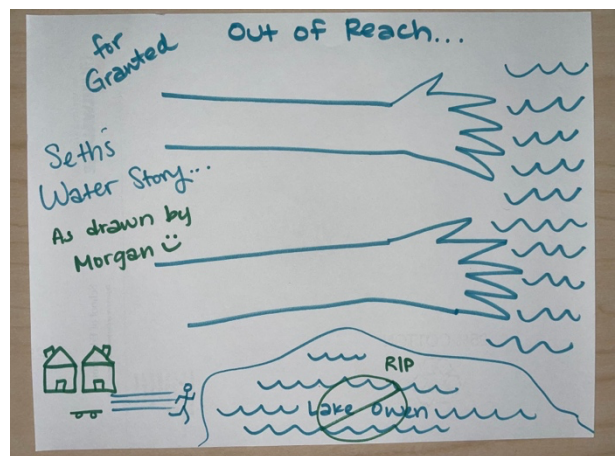 for
Granted
Out of Reach...
Seth's
Water Story...
As drawn by
Morgan
RIP
Lake Owen